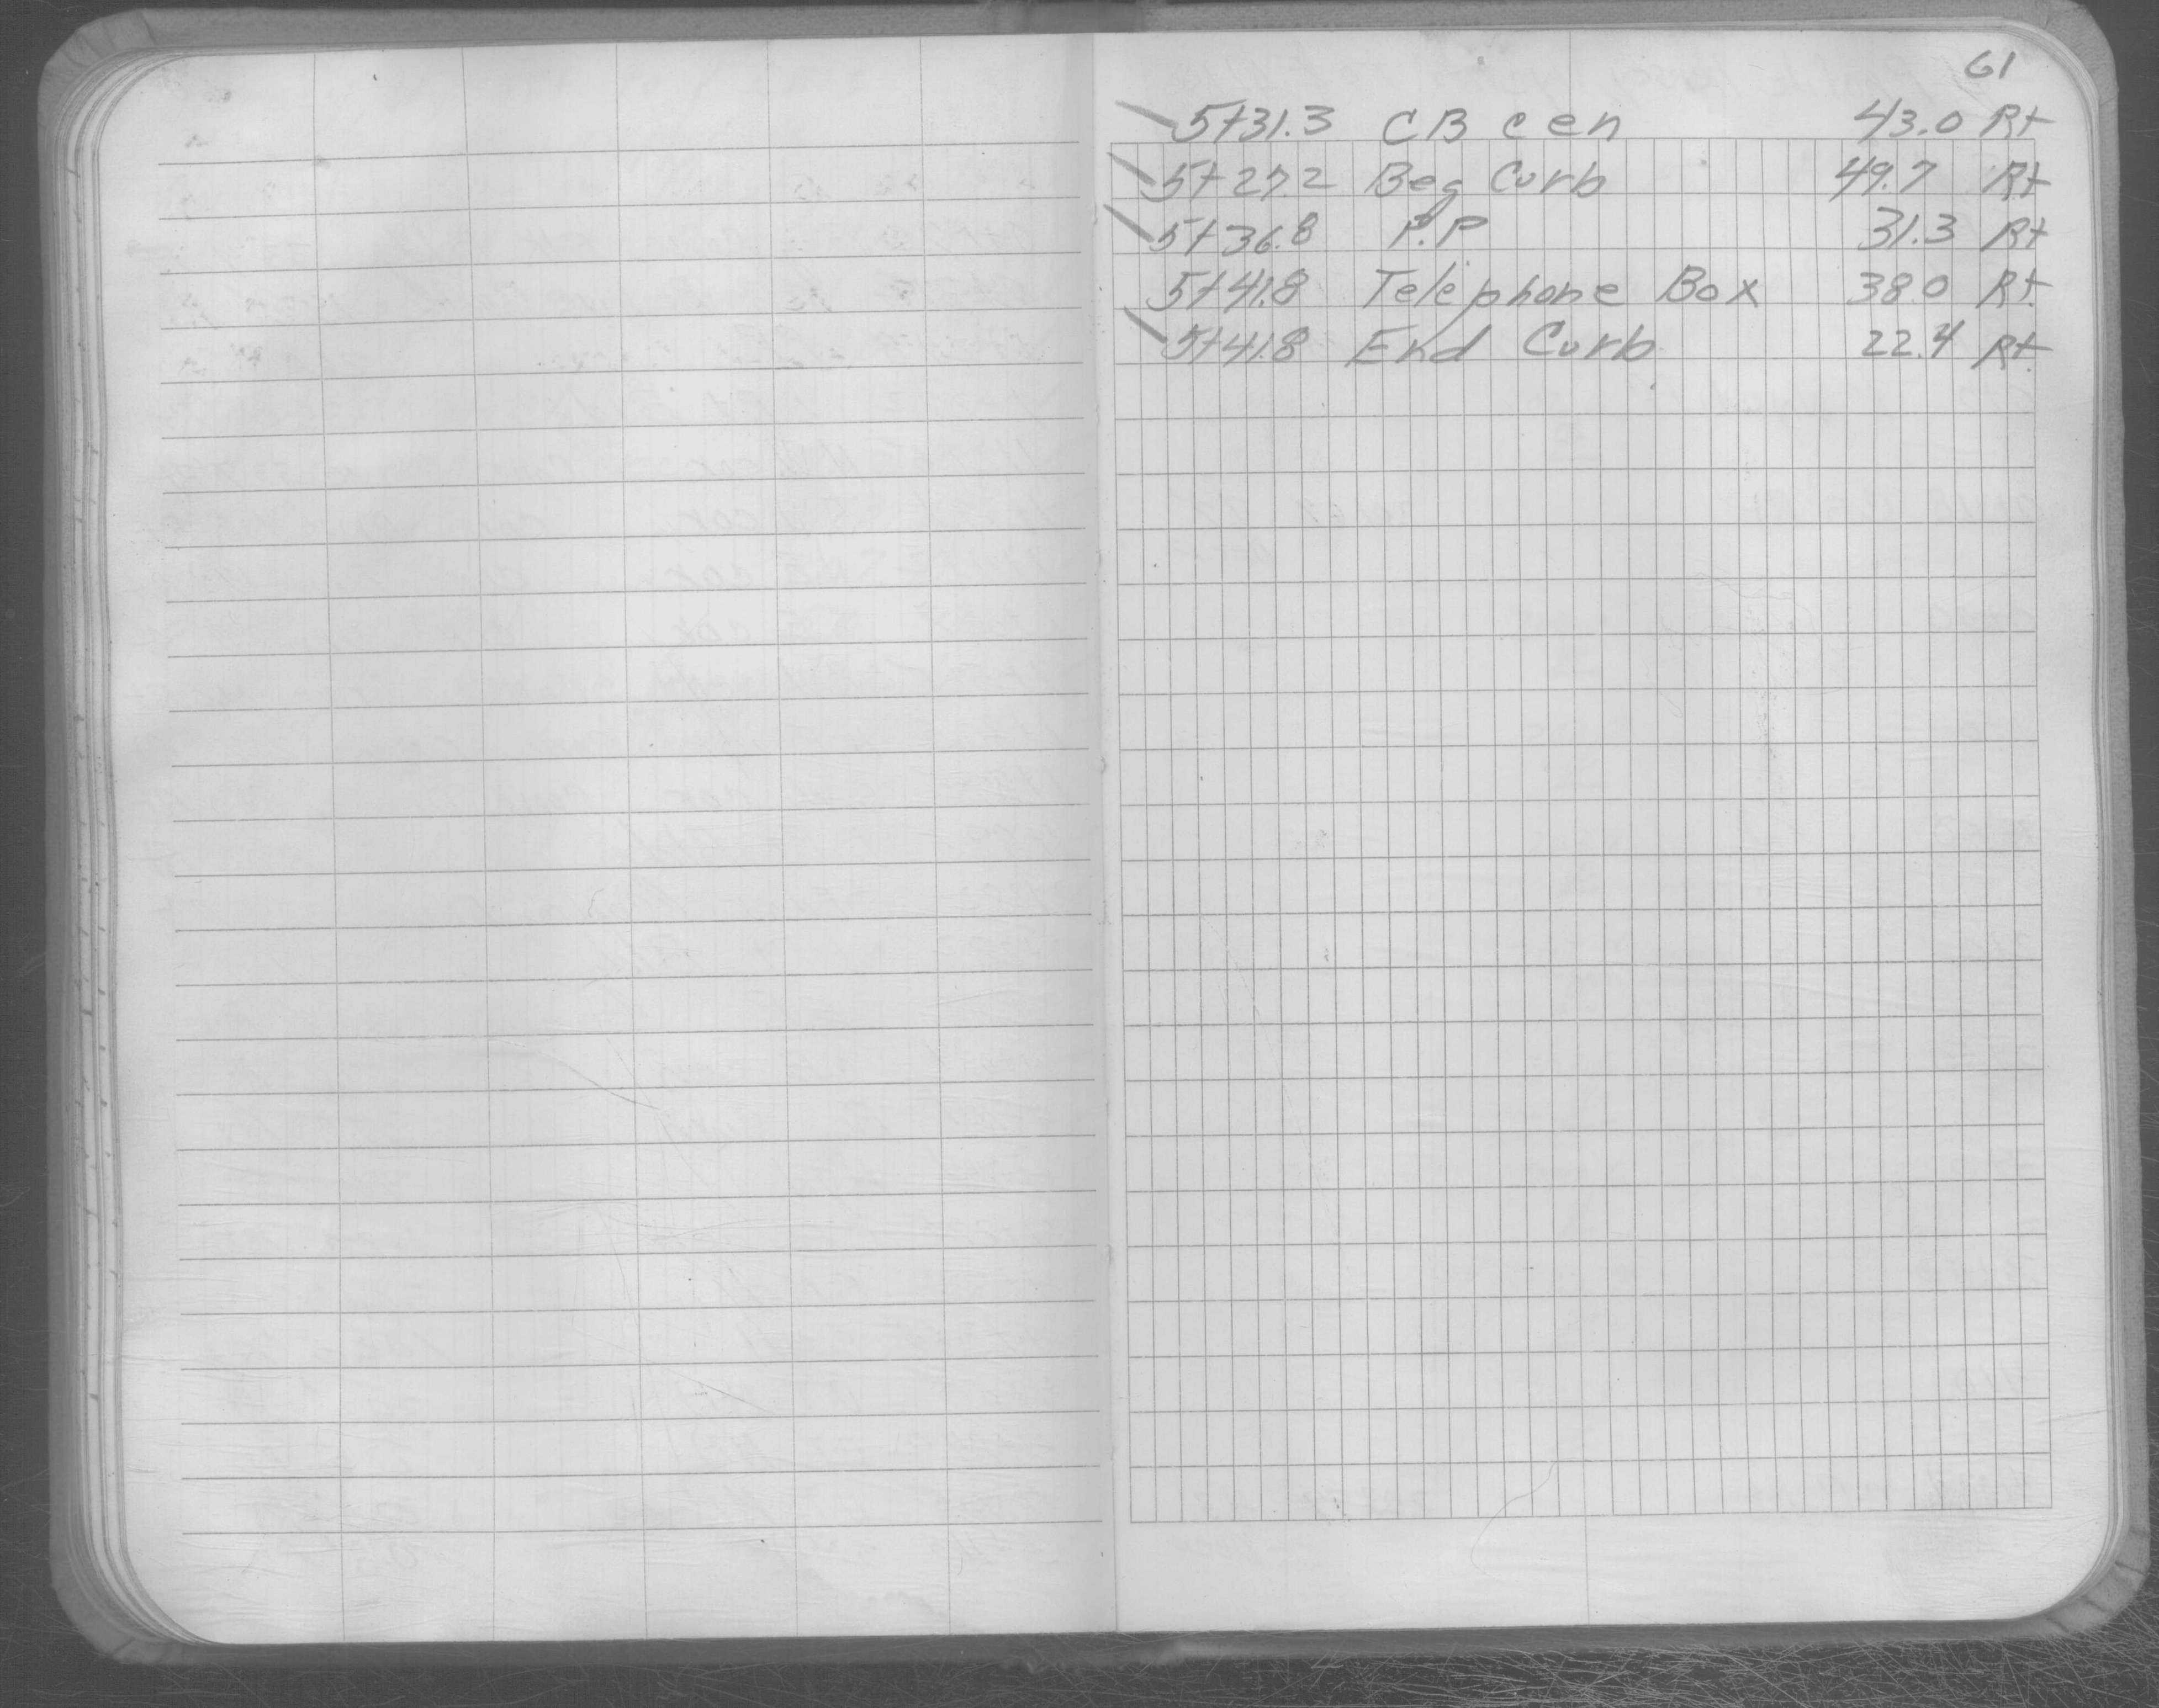 61
5+31.3 CB cen 43.0 Rt
5+27.2 Beg Curb 49.7 Rt
5+36.8 P.P 31.3 Rt
5+41.8 Telephone Box 38.0 Rt
5+41.8 End Curb 22.4 Rt